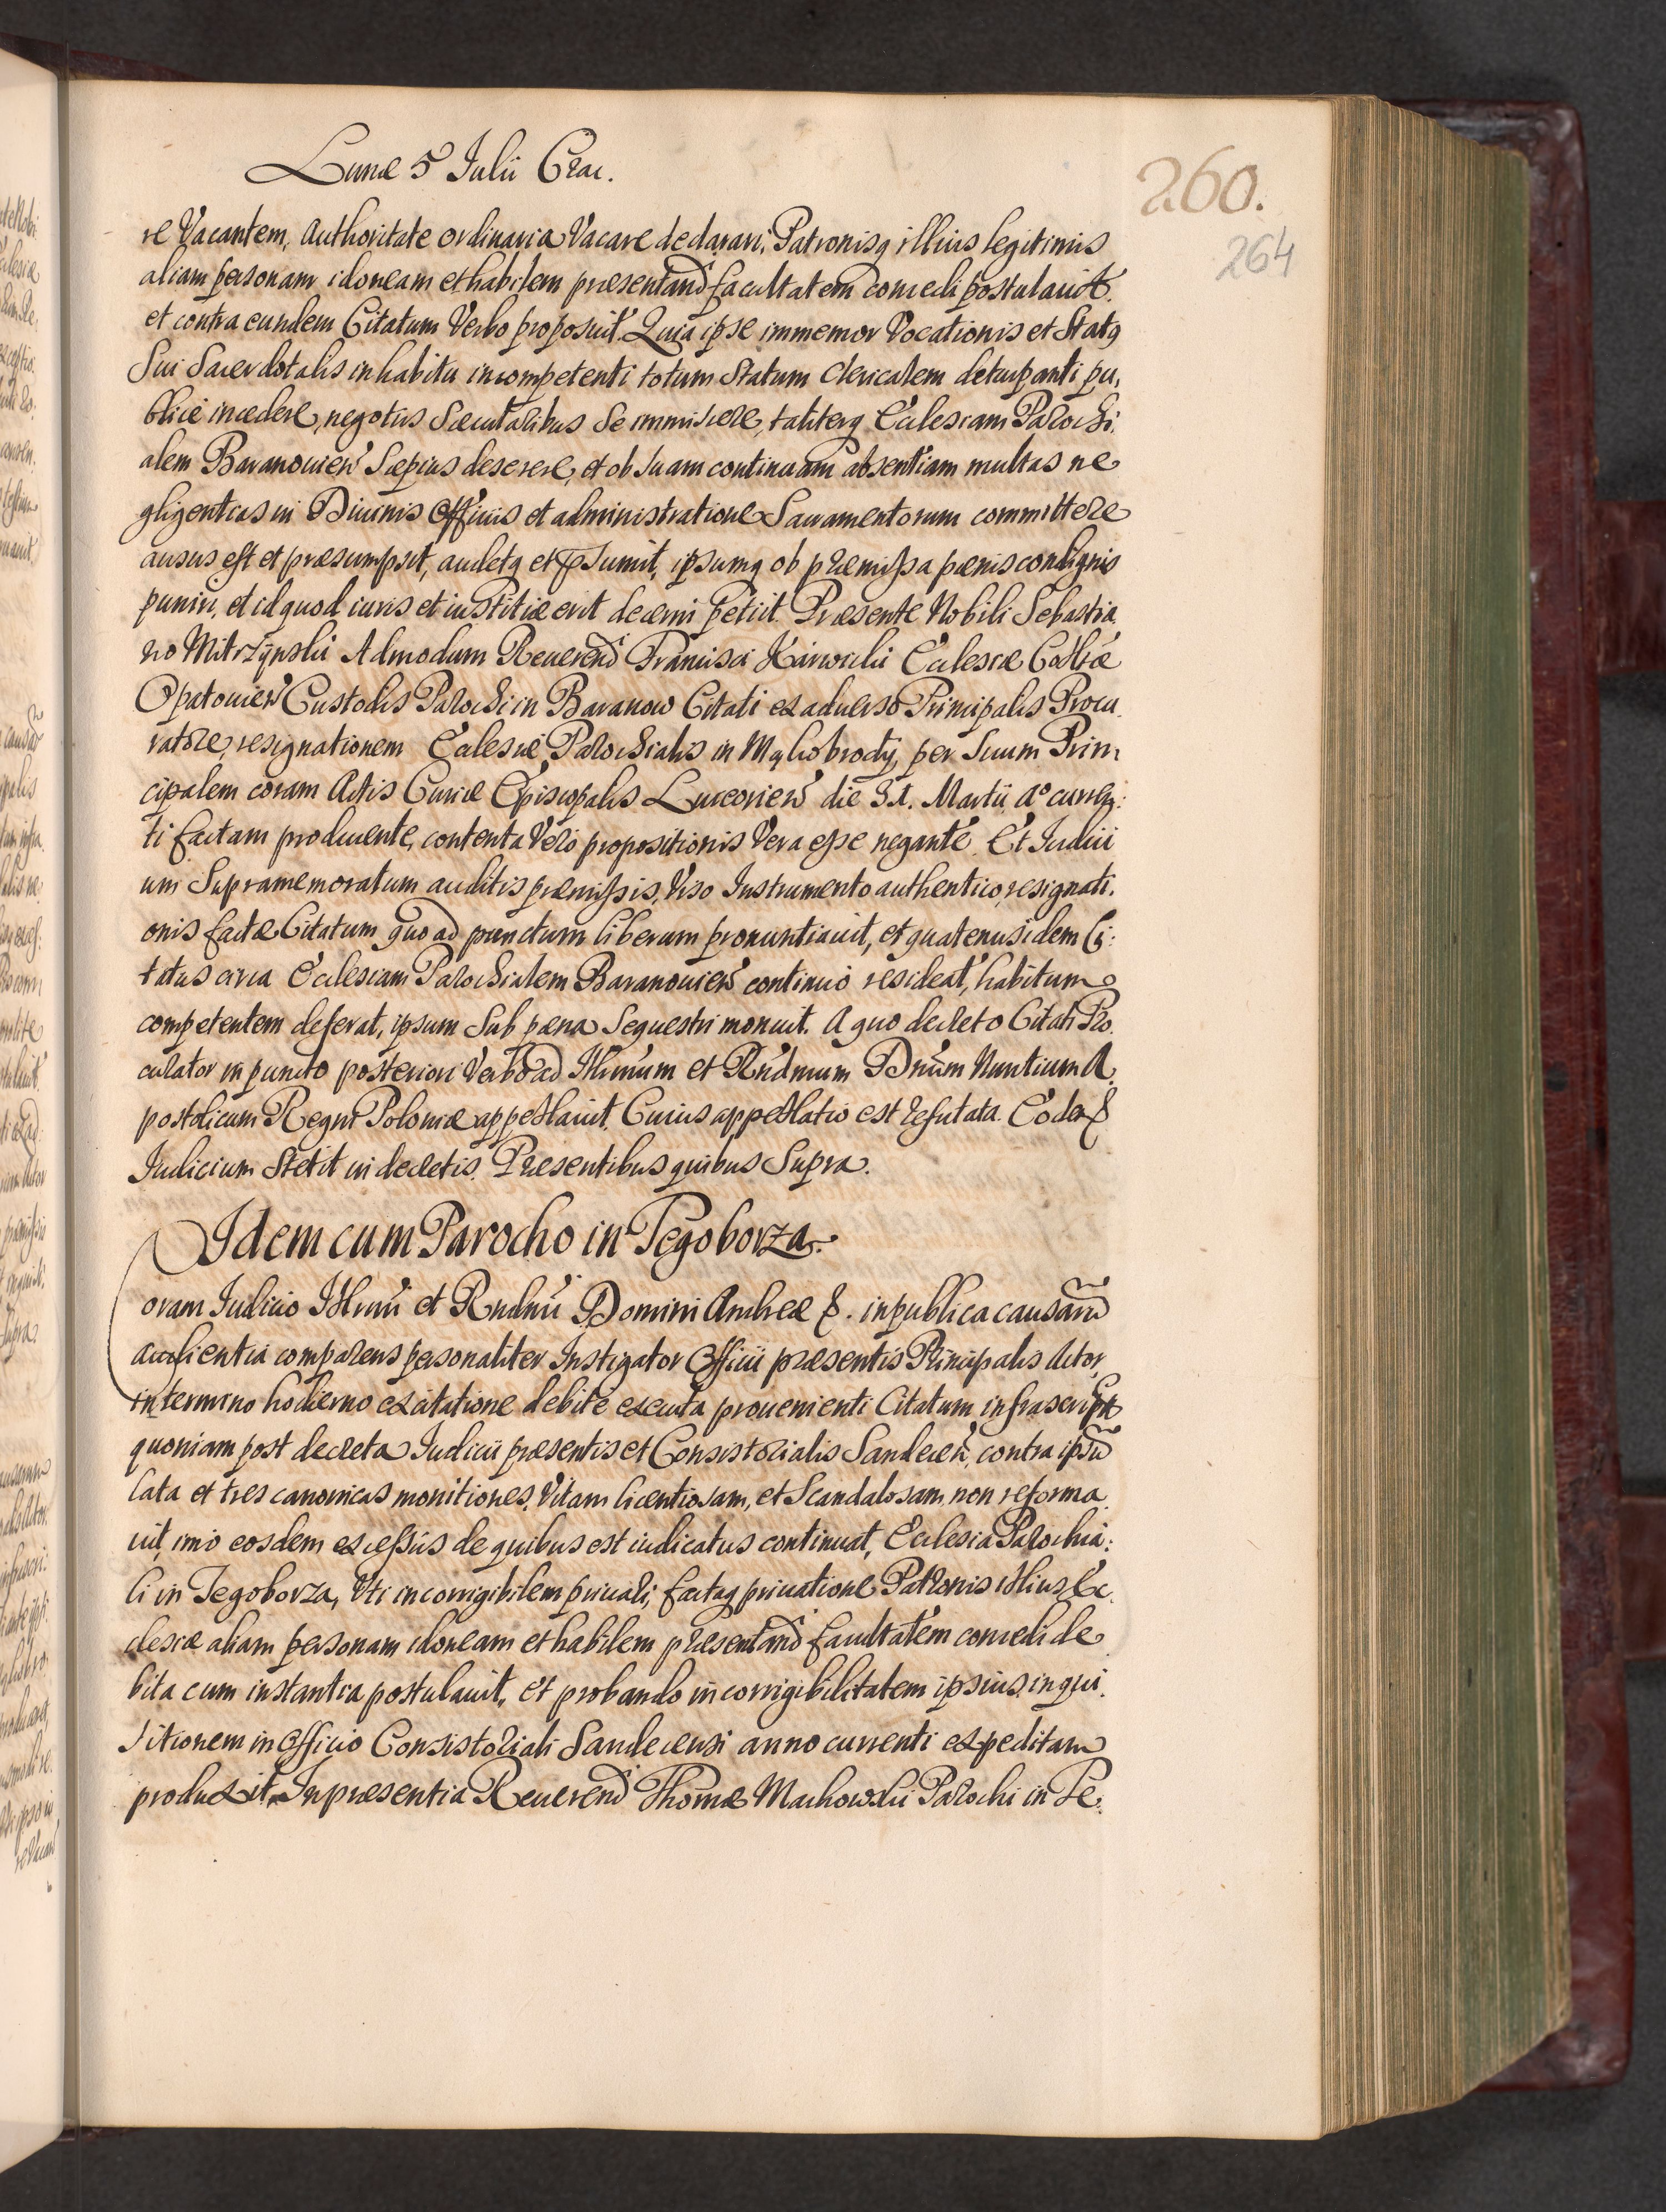 Lunæ 5 Iulii Crac.
260.
264
re Vacantem, Authoritate ordinaria Vacare declarari, Patronisq illius legitimis
aliam personam idoneam et habilem præsentand facultatem concedi postulauit.
et contra eundem Citatum Verbo proposuit. Quia ipse immemor Vocationis et Statq
Sui Sacerdotalis in habitu incompetenti totum Statum Clericalem deturpanti pu,
blice incedere, negotiis Sæcularibus Se immiscere, taliterq Ecclesiam Parochi,
alem Baranouien Sæpius deserere, et ob Suam continuam absentiam multas ne
gligentias in Diuinis Officiis et administratione Sacramentorum committere
ausus est et præsumpsit, audetq et præsumit, ipsumq ob præmissa pænis condignis
puniri, et id quod iuris et iustitiæ erit decerni petiit. Præsente Nobili Sebastia,
no Mitrzynski Admodum Reuerend Francisci Karwicki Ecclesiæ Collræ
Opatouien Custodis Parochi in Baranow Citati ex aduerso Principalis Procu,
ratore, resignationem Ecclesiæ Parochialis in Mokobrody, per Suum Prin,
cipalem coram Actis Curiæ Episcopalis Luceorien die 31. Martii Ao curren:
ti factam producente, contenta Vero propositionis Vera esse negante. Et Iudici
um Supramemoratum auditis præmissis, Viso Instrumento authentico, resignati,
onis factæ Citatum quo ad punctum liberum pronuntiauit, et quatenus idem Ci:
tatus circa Ecclesiam Parochialem Baranouien continuo resideat, habitum
competentem deferat, ipsum Sub pæna Sequestri monuit. A quo decreto Citati Pro
curator in puncto posteriori Verbo ad Illmum et Rndmum Dnum Nuntium A,
postolicum Regni Poloniæ appellauit. Cuius appellatio est refutata. Eod
Iudicium Stetit in decretis. Præsentibus quibus Supra.
Idem cum Parocho in Tegoborza.
Coram Iudicio Illmi et Rndmi Domini Andreæ &. in publica causarum
audientia comparens personaliter Instigator Officii præsentis Principalis Actor,
in termino hodierno ex citatione debite executa prouenienti Citatum infrascript
quoniam post decreta Iudicii præsentis et Consistorialis Sandecen, contra ipsum
lata et tres canonicas monitiones, Vitam licentiosam, et Scandalosam non reforma,
uit, imo eosdem excessus de quibus est iudicatus continuat, Ecclesia Parochia:
li in Tegoborza, Uti incorrigibilem priuari, factaq priuatione Patronis illius Ec,
clesiæ aliam personam idoneam et habilem præsentand facultatem concedi de
bita cum instantia postulauit, et probando incorrigibilitatem ipsius, inqui,
sitionem in Officio Consistoriali Sandecensi anno currenti expeditam
produxit. In præsentia Reuerend Thomæ Machowski Parochi in Te,